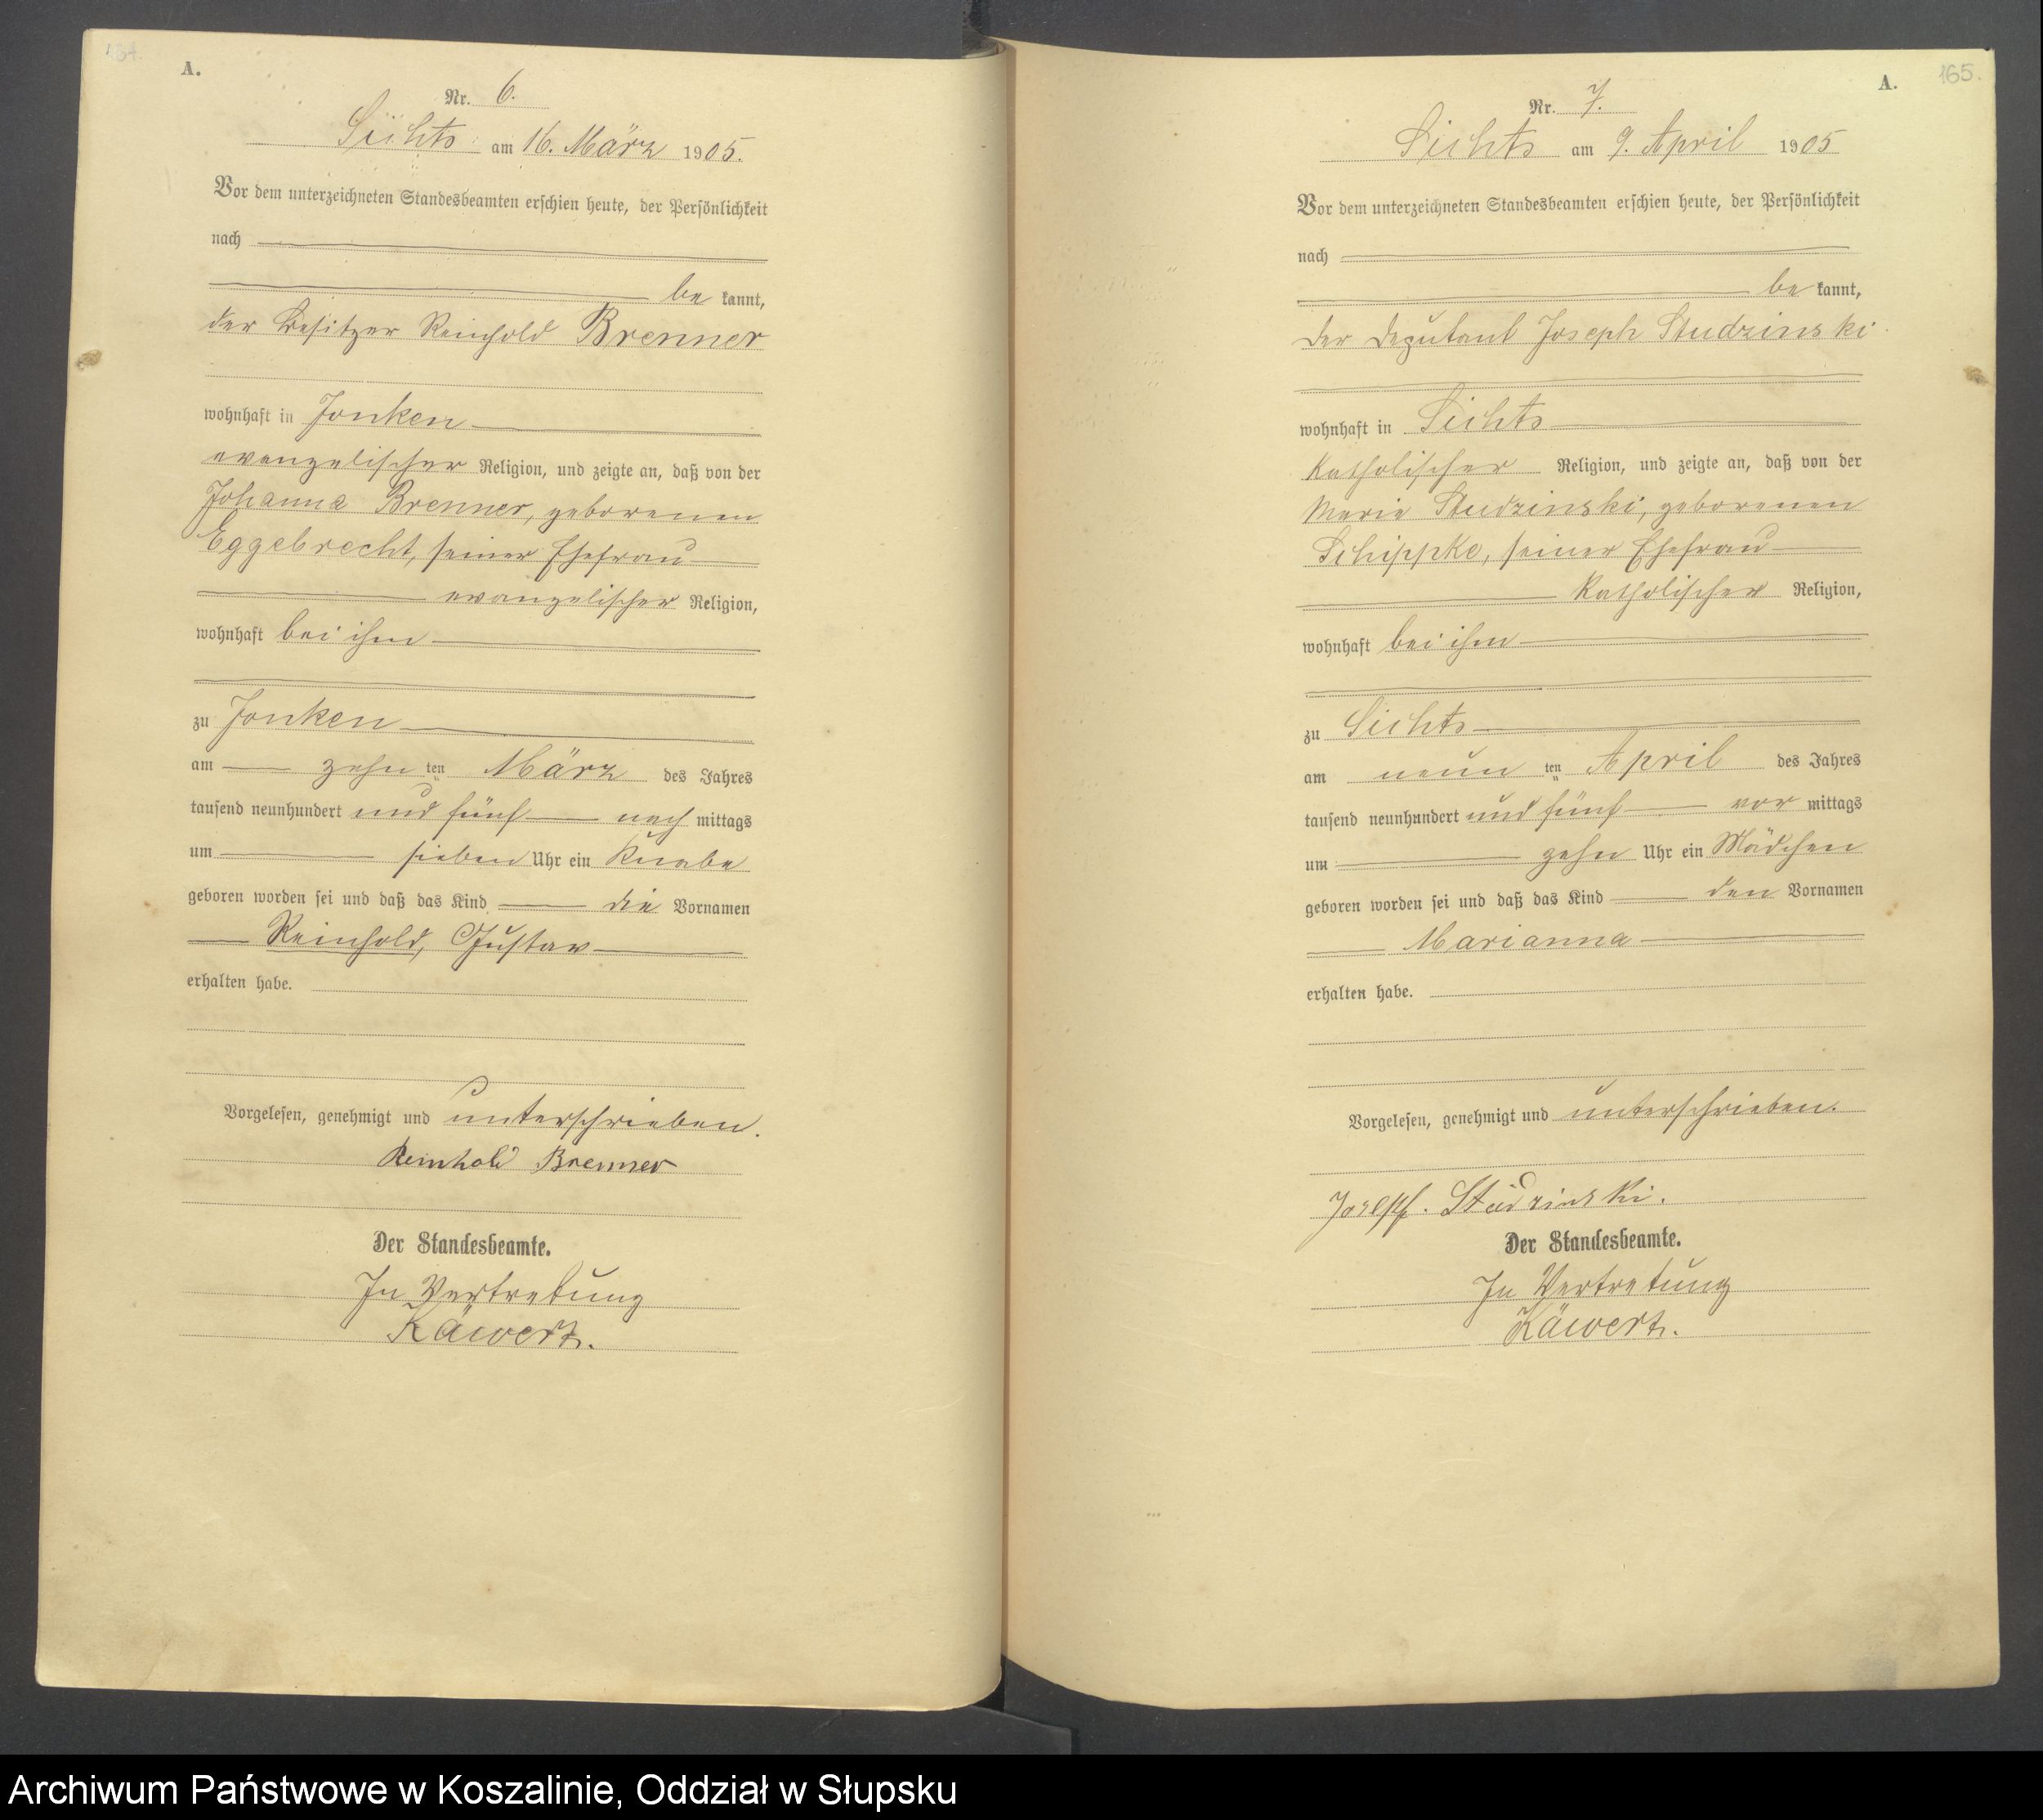 A.
Nr. 6.
Sichts am 16. März 1905.
Vor dem unterzeichneten Standesbeamten erschien heute, der Persönlichkeit
nach
be kannt,
der Besitzer Reinhold Brenner
wohnhaft in Jonken
evangelischer Religion, und zeigte an, daß von der
Johanna Brenner, geborenen
Eggebrecht, seiner Ehefrau
evangelischer Religion,
wohnhaft bei ihm
zu Jonken
am zehn ten März des Jahres
tausend neunhundert und fünf nach mittags
um sieben Uhr ein Knabe
geboren worden sei und daß das Kind die Vornamen
Reinhold, Gustav
erhalten habe.
Vorgelesen, genehmigt und unterschrieben.
Reinhold Brenner
Der Standesbeamte.
In Vertretung
Käwert.
A.
165.
Nr. 7.
Sichts am 9. April 1905
Vor dem unterzeichneten Standesbeamten erschien heute, der Persönlichkeit
nach
be kannt,
der Deputant Joseph Studzinski
wohnhaft in Sichts
katholischer Religion, und zeigte an, daß von der
Marie Studzinski, geborenen
Schippke, seiner Ehefrau
katholischer Religion,
wohnhaft bei ihm
zu Sichts
am neun ten April des Jahres
tausend neunhundert und fünf vor mittags
um zehn Uhr ein Mädchen
geboren worden sei und daß das Kind den Vornamen
Marianna
erhalten habe.
Vorgelesen, genehmigt und unterschrieben.
Joseph. Studzinski.
Der Standesbeamte.
In Vertretung
Käwert.
Archiwum Państwowe w Koszalinie, Oddział w Słupsku